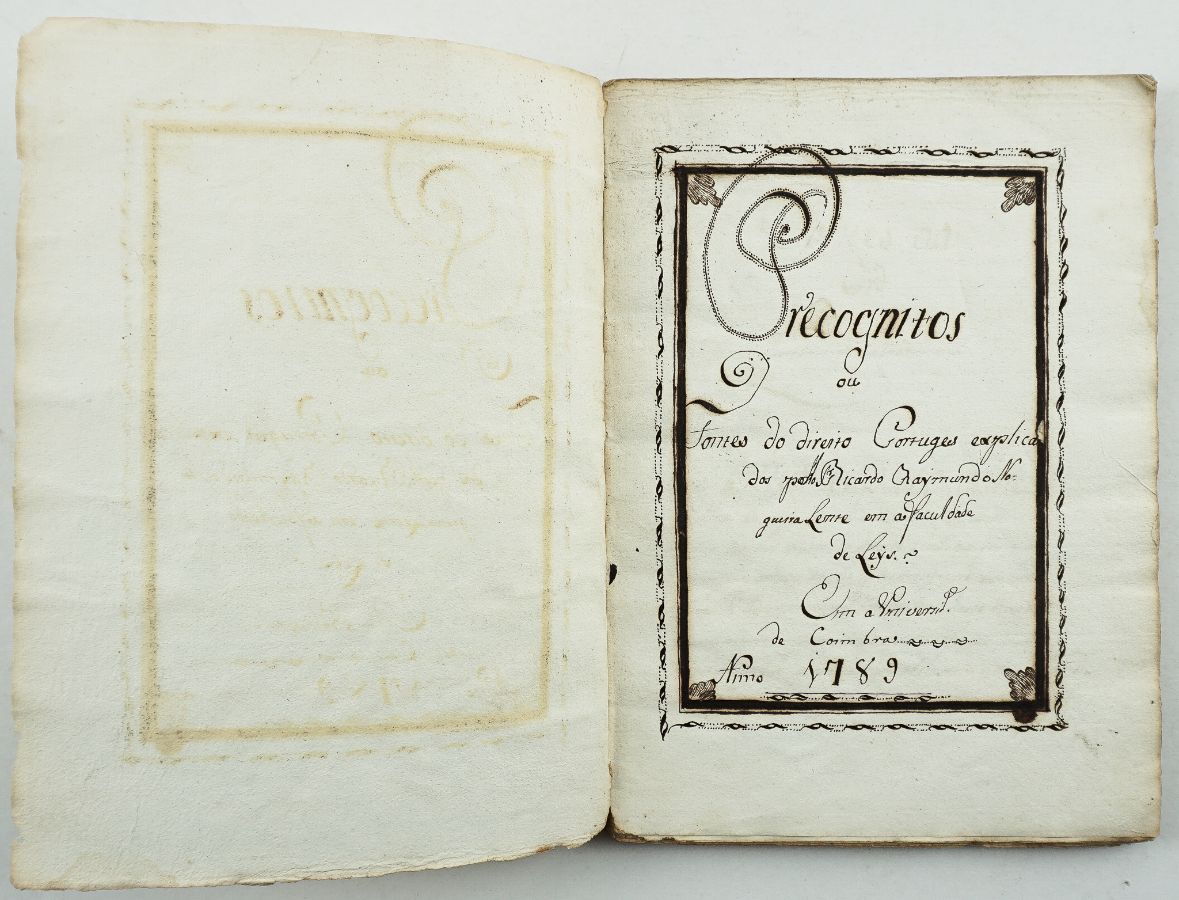 Precognitos
ou
Fontes do direito Portuges explica
dos pello Sr. Ricardo Raymundo No-
gueira Lente em a Faculdade
de Leys.
Em a Universid.e
de Coimbra
Anno 1789